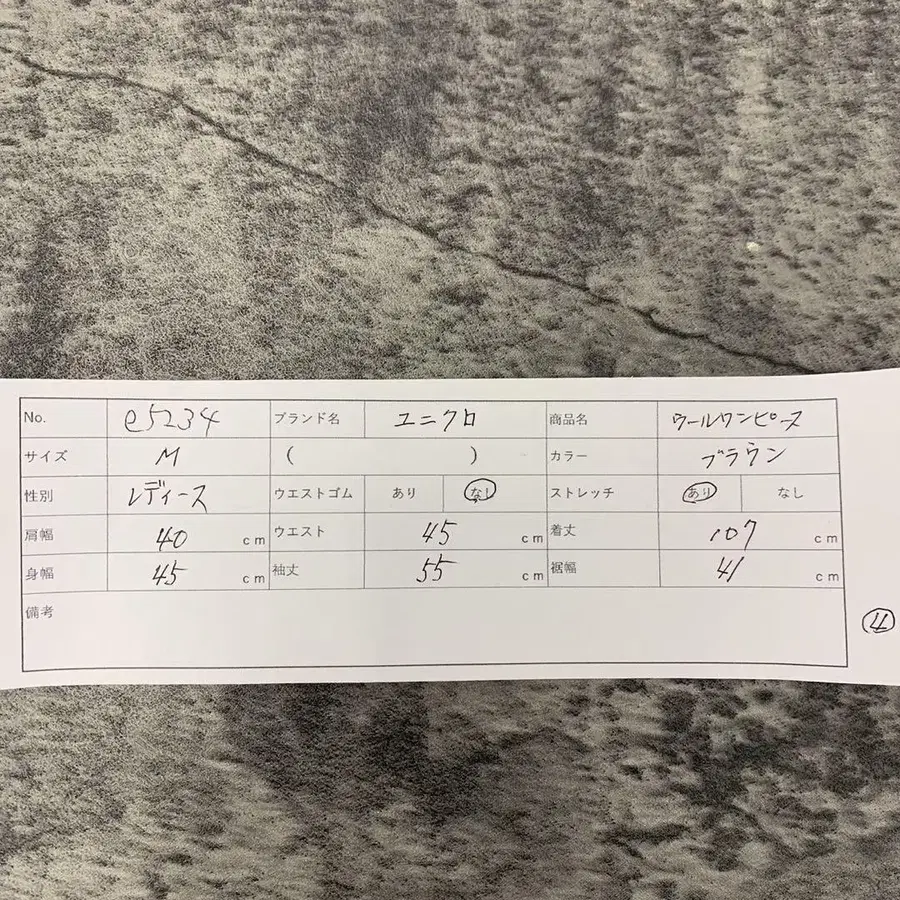 No. e5234 ブランド名 ユニクロ 商品名 ウールワンピース
サイズ M ( ) カラー ブラウン
性別 レディース ウエストゴム あり なし ストレッチ あり なし
肩幅 40 cm ウエスト 45 cm 着丈 107 cm
身幅 45 cm 袖丈 55 cm 裾幅 41 cm
備考
4